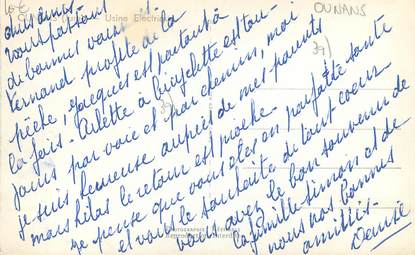 10€
OUNANS
39
Usine Electrique
chers amis
nous passons
de bonnes vacances
Fernand profite de la
pêche, Jacques est partout à
la fois. Arlette à bicyclette est tou-
jours par voie et par chemin, moi
je suis heureuse auprès de mes parents
mais hélas le retour est proche.
Je pense que vous êtes en parfaite santé
et vous le souhaite de tout coeur
vous avez le bon souvenir de
la famille Simon et de
nous nos bonnes
amitiés
Denise